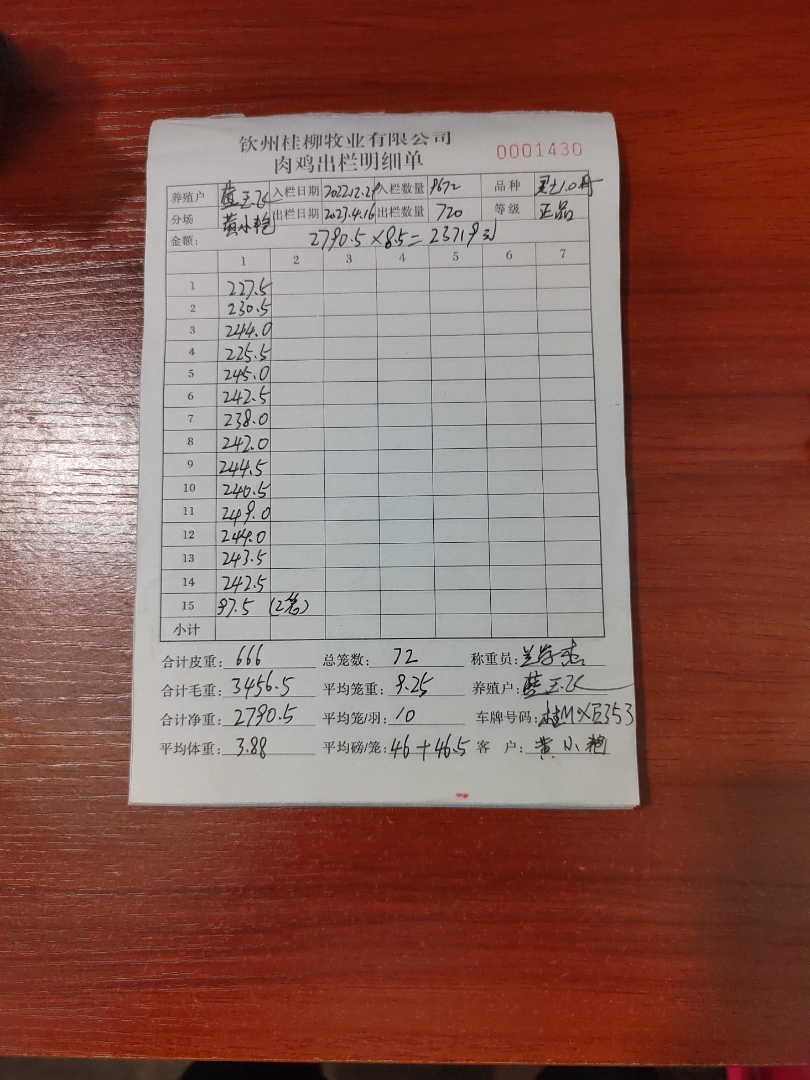 钦州桂柳牧业有限公司
肉鸡出栏明细单 0001430
养殖户 蓝玉飞 入栏日期 2022.12.24 入栏数量 9672 品种
分场 黄小艳 出栏日期 2023.4.16 出栏数量 720 等级 正品
金额: 2790.5×8.5=23719元
1 2 3 4 5 6 7
1 227.5
2 230.5
3 244.0
4 225.5
5 245.0
6 242.5
7 238.0
8 242.0
9 244.5
10 240.5
11 249.0
12 244.0
13 243.5
14 242.5
15 97.5 (2笼)
小计
合计皮重: 666 总笼数: 72 称重员:
合计毛重: 3456.5 平均笼重: 9.25 养殖户: 蓝玉飞
合计净重: 2790.5 平均笼/羽: 10 车牌号码:
平均体重: 3.88 平均磅/笼: 46+46.5 客 户: 黄小艳